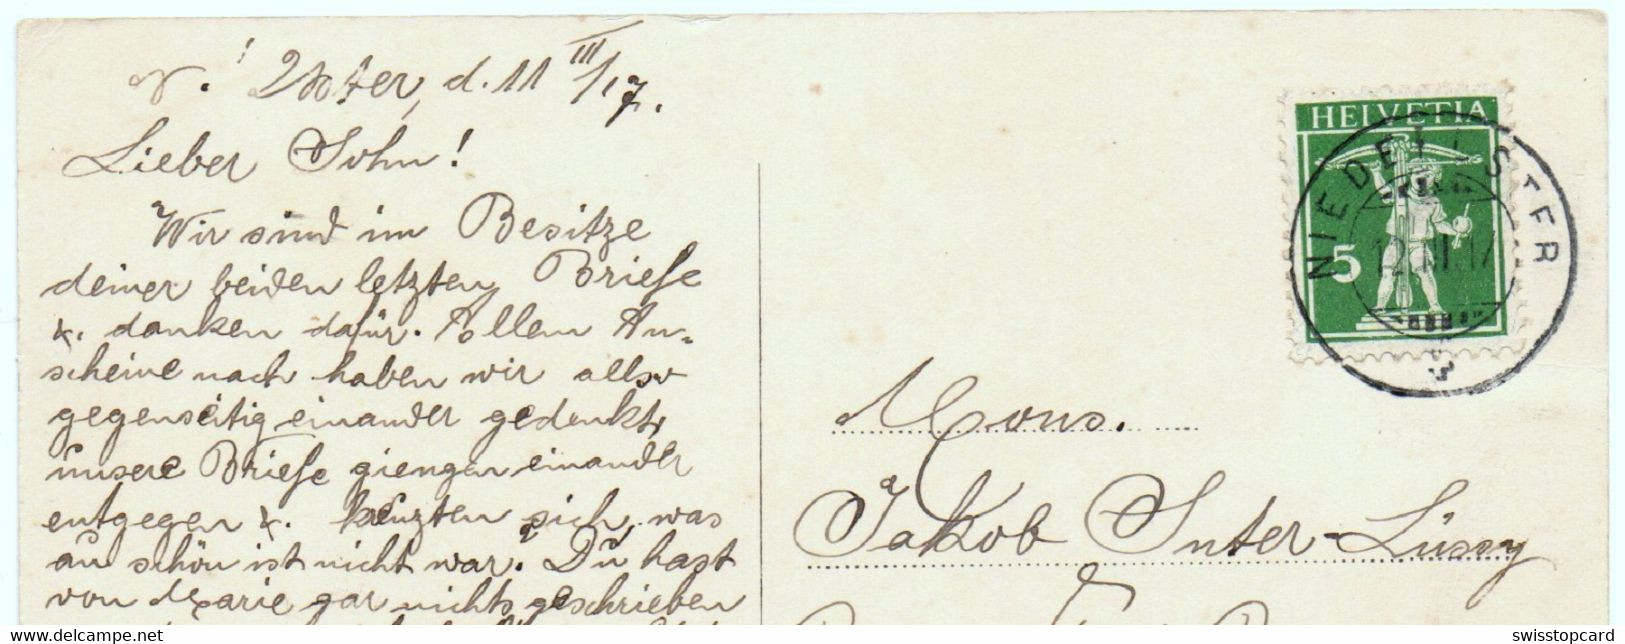 N. Uster, d. 11 III/17.
Lieber Sohn!
Wir sind im Besitze
deiner beiden letzten Briefe
&. danken dafür. Allem An-
scheine nach haben wir allso
gegenseitig einander gedenkt,
unsere Briefe giengen einander
entgegen &. kreuzten sich, was
au schön ist nicht war. Du hast
von Marie gar nichts geschrieben
HELVETIA
5
NIEDERUSTER
12.III.17
Mons.
Jakob Suter-Lüssy
swisstopcard